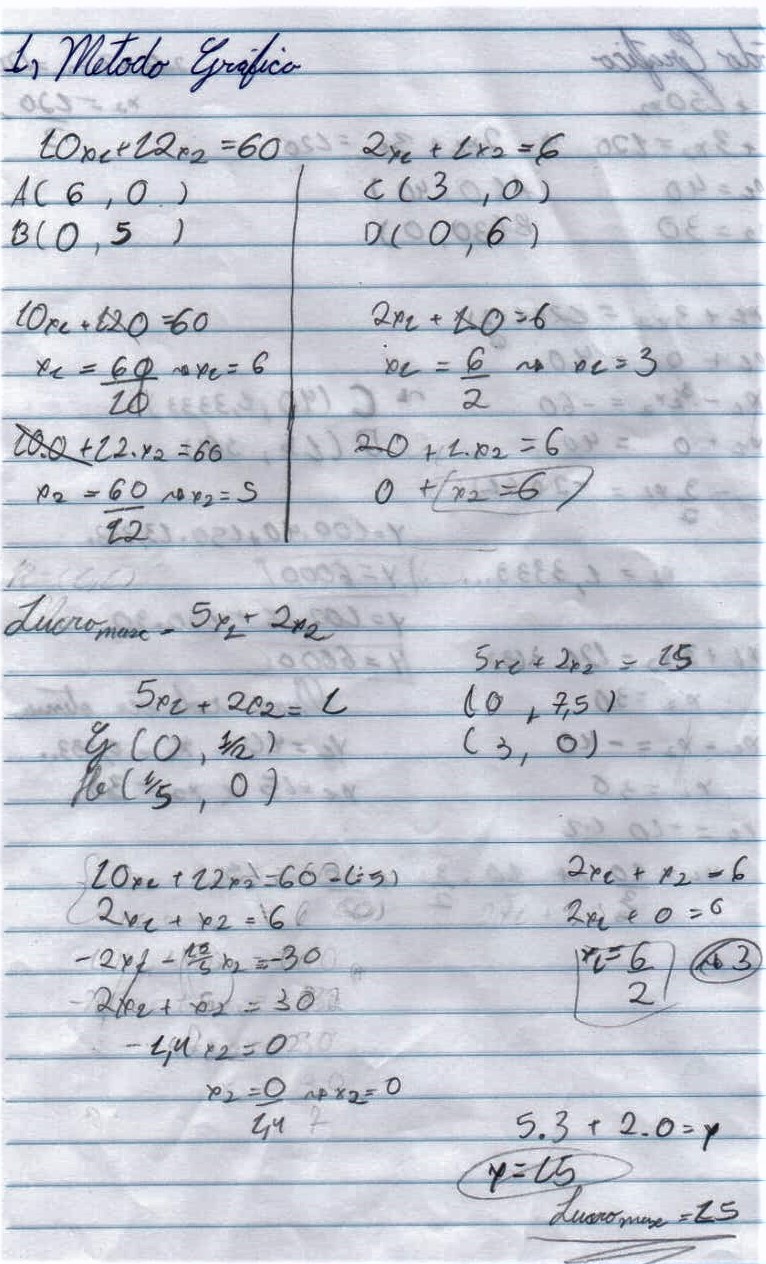 1, Metodo Gráfico
10x₁+12x₂=60
A( 6 , 0 )
B( 0 , 5 )
10x₁+120=60
x₁ = 60/10 ⇝ x₁= 6
10.0 +12.x₂ =60
x₂ = 60/12 ⇝ x₂= 5
2x₁ + 1x₂ = 6
C ( 3 , 0 )
D( 0 , 6 )
2x₁ + 10 = 6
x₁ = 6/2 ⇝ x₁ = 3
20 + 1.x₂ = 6
0 + x₂ = 6
Lucro max = 5x₁ + 2x₂
5x₁ + 2x₂ = 1
G ( 0 , 1/2 )
H ( 1/5 , 0 )
5x₁ + 2x₂ = 15
( 0 , 7,5 )
( 3 , 0 )
10x₁ + 12x₂ = 60 (÷5)
2x₁ + x₂ = 6
-2x₁ - 12/5 x₂ = -30
2x₁ + x₂ = 30
-1,4 x₂ = 0
x₂ = 0/1,4 ⇝ x₂ = 0
2x₁ + x₂ = 6
2x₁ + 0 = 6
x₁ = 6/2 ⇝ 3
5.3 + 2.0 = y
y = 15
Lucro max = 15